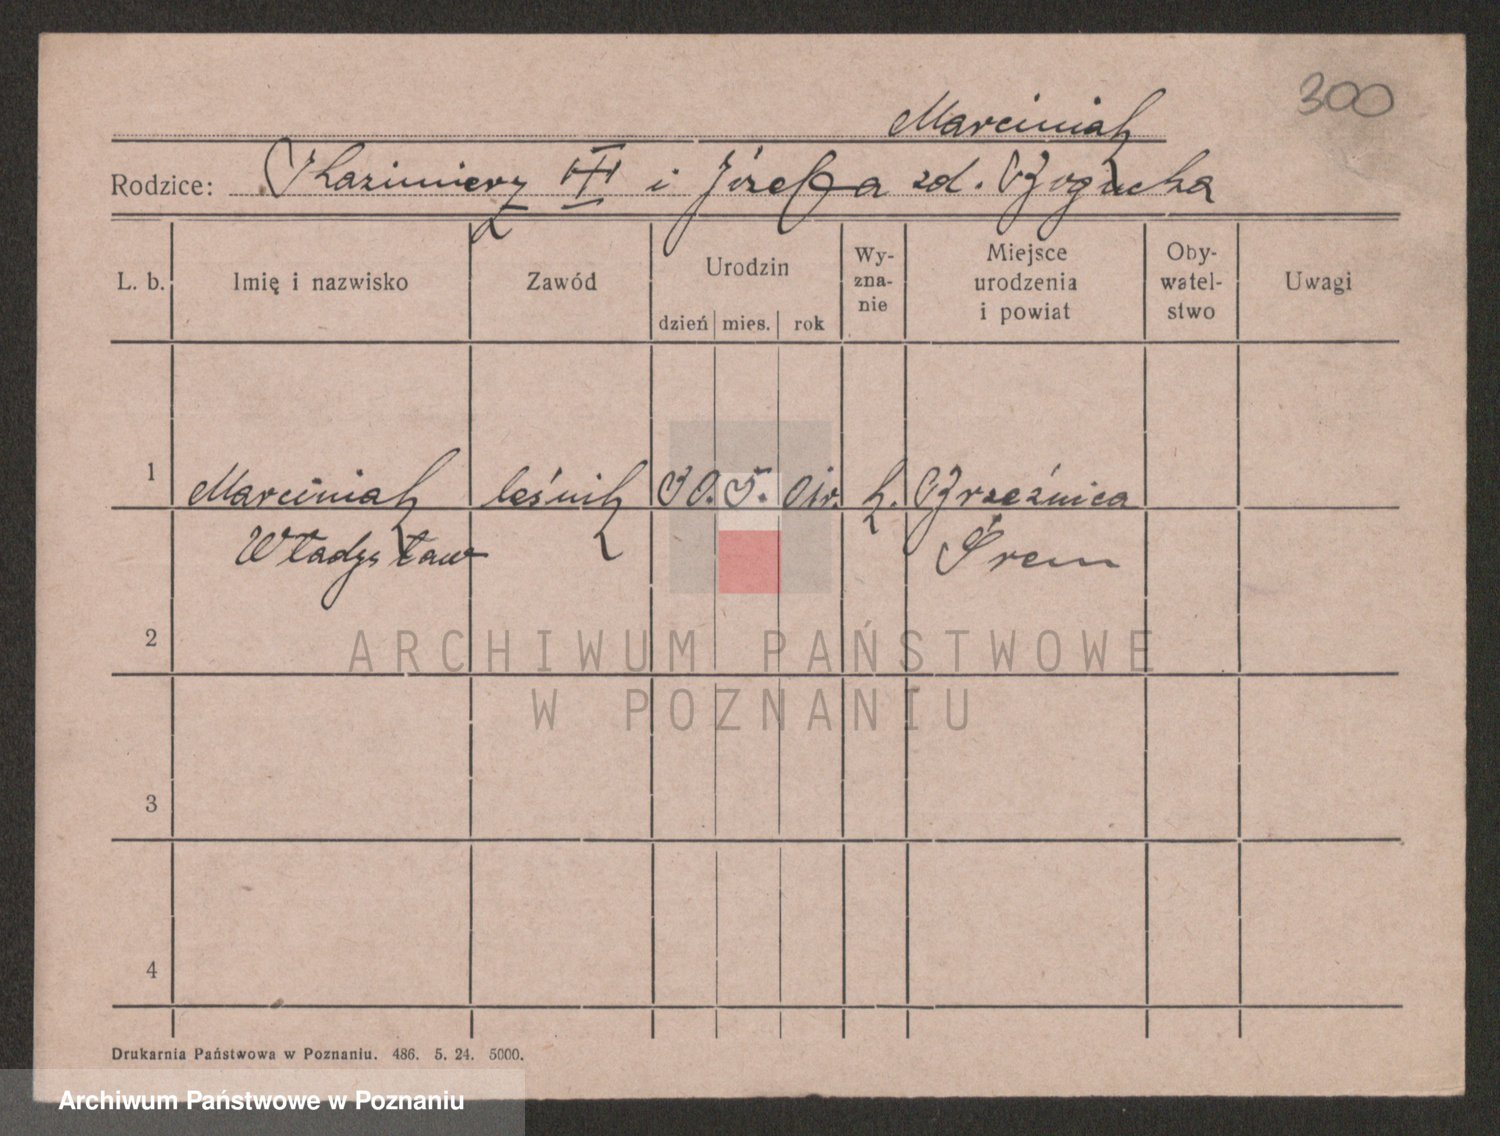 300
Marciniak
Rodzice: Kazimierz III i Józefa zd. Bogucka
L. b.
Imię i nazwisko
Zawód
Urodzin
dzień mies. rok
Wy-
zna-
nie
Miejsce
urodzenia
i powiat
Oby-
watel-
stwo
Uwagi
1 Marciniak leśnik 30. 5. k. Brzeźnica
Władysław Śrem
2
ARCHIWUM PAŃSTWOWE
W POZNANIU
3
4
Drukarnia Państwowa w Poznaniu. 486. 5. 24. 5000.
Archiwum Państwowe w Poznaniu